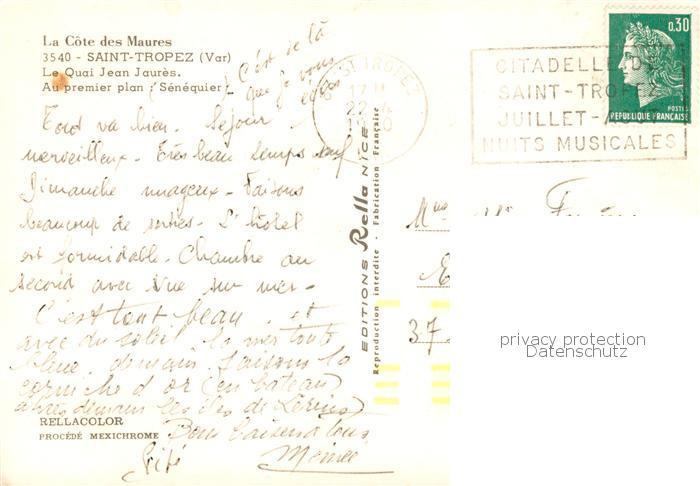 La Côte des Maures
3540 - SAINT-TROPEZ (Var)
Le Quai Jean Jaurès.
Au premier plan : "Sénéquier"
C'est de là
que je vous
écris
Tout va bien. Séjour
merveilleux. Très beau temps sauf
Dimanche nuageux. Faisons
beaucoup de sorties. L'hôtel
est formidable. Chambre au
second avec vue sur mer.
C'est tout beau. et
avec du soleil, la mer toute
bleue. demain faisons la
corniche d'or (en bateau)
après demain les îles de Lérins
Bons baisers à tous
Mémée
RELLACOLOR
PROCÉDÉ MEXICHROME
EDITIONS Rella NICE
Reproduction interdite - Fabrication Française
ST TROPEZ
17 H
22
CITADELLE DE
SAINT-TROPEZ
JUILLET-AOUT
NUITS MUSICALES
0,30
POSTES
REPUBLIQUE FRANÇAISE
37
privacy protection
Datenschutz